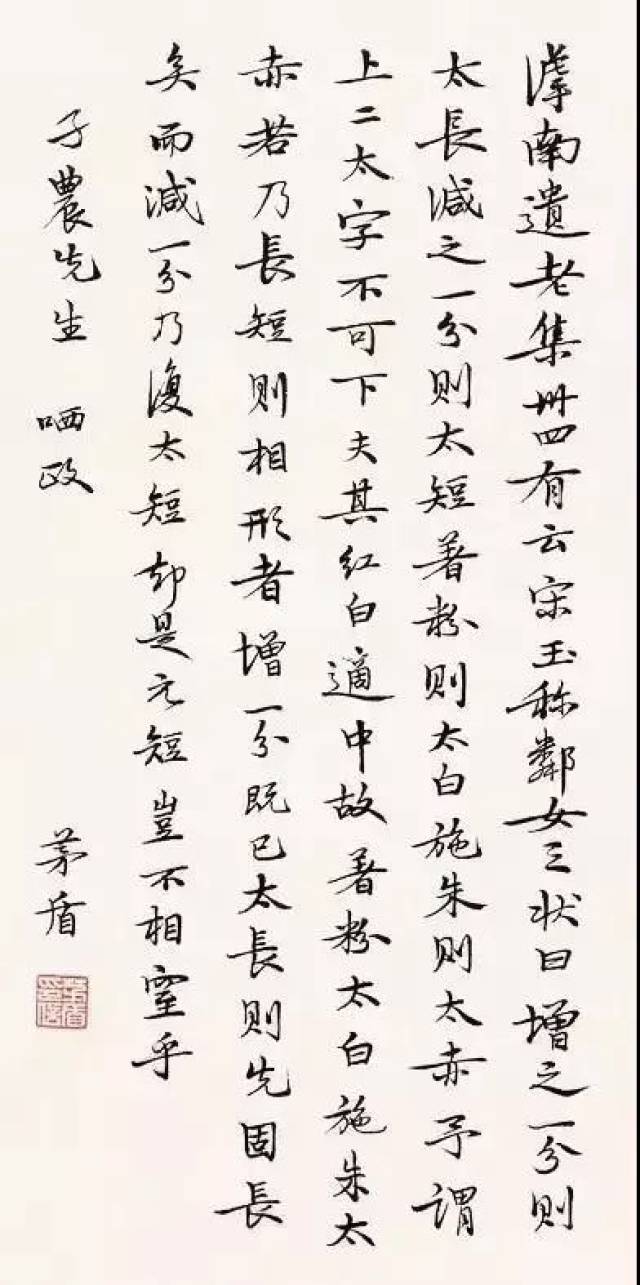 滹南遺老集卅四有云宋玉称鄰女之状曰增之一分则
太長減之一分则太短著粉则太白施朱则太赤予謂
上二太字不可下夫其红白適中故著粉太白施朱太
赤若乃長短则相形者增一分既已太長则先固長
矣而減一分乃復太短却是元短豈不相窒乎
子農先生 哂政 茅盾